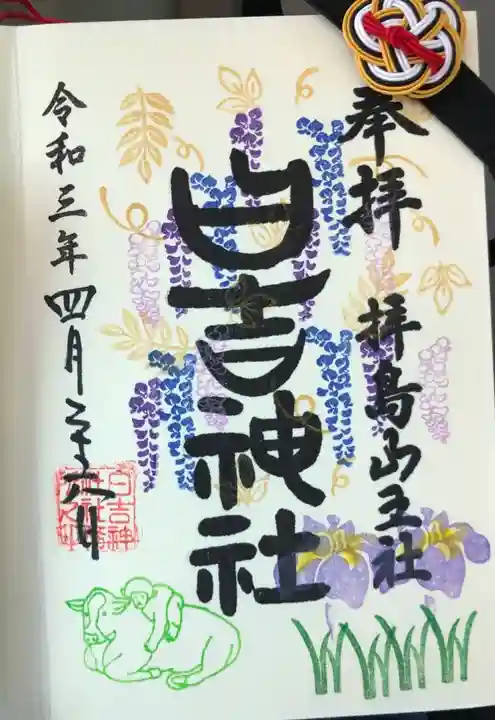 奉拝 拝島山王社
日吉神社
令和三年四月二十六日
日吉神